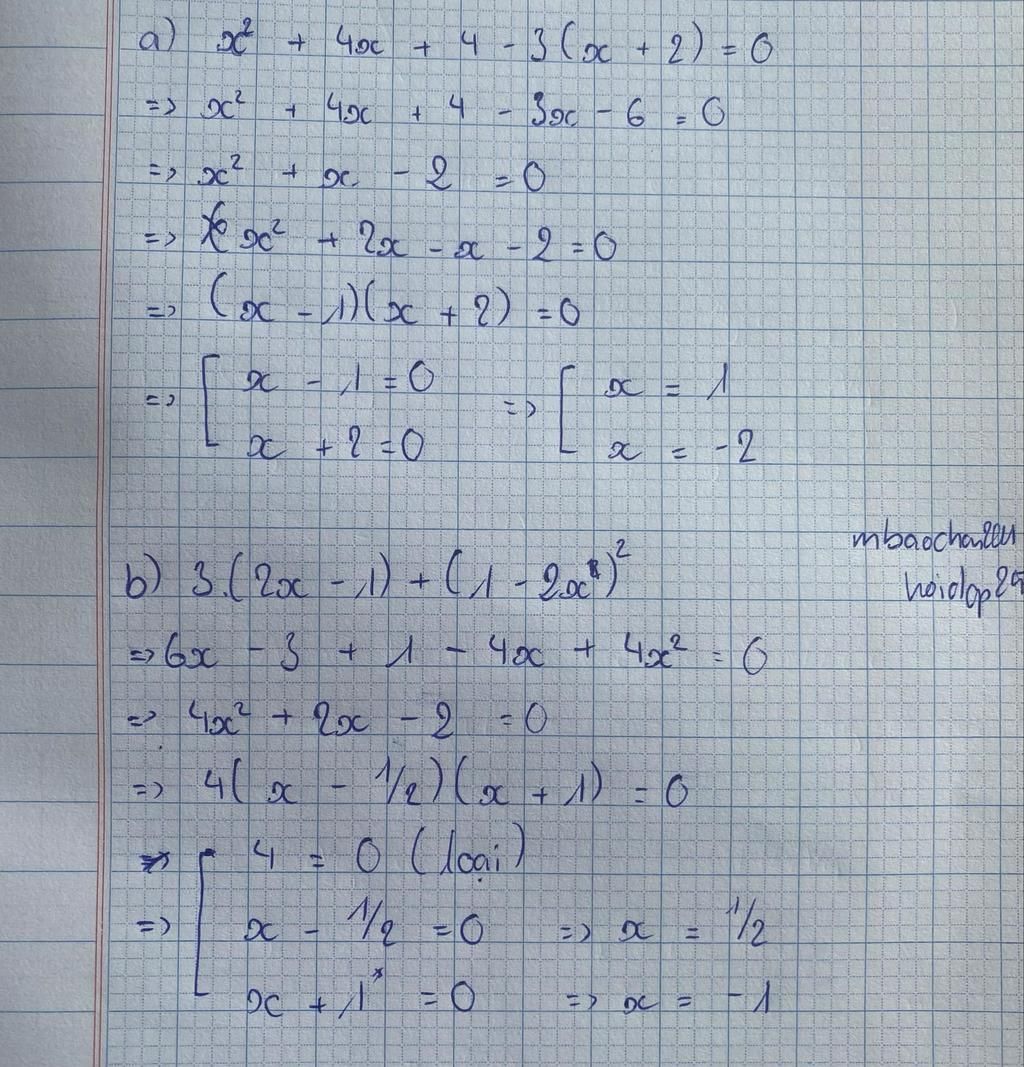 a) x² + 4x + 4 - 3(x + 2) = 0
=> x² + 4x + 4 - 3x - 6 = 0
=> x² + x - 2 = 0
=> x² + 2x - x - 2 = 0
=> (x - 1)(x + 2) = 0
=> [ x - 1 = 0 => [ x = 1
x + 2 = 0 x = -2
b) 3.(2x - 1) + (1 - 2x)²
=> 6x - 3 + 1 - 4x + 4x² = 0
=> 4x² + 2x - 2 = 0
=> 4(x - 1/2)(x + 1) = 0
=> [ 4 = 0 (loại)
x - 1/2 = 0 => x = 1/2
x + 1 = 0 => x = -1